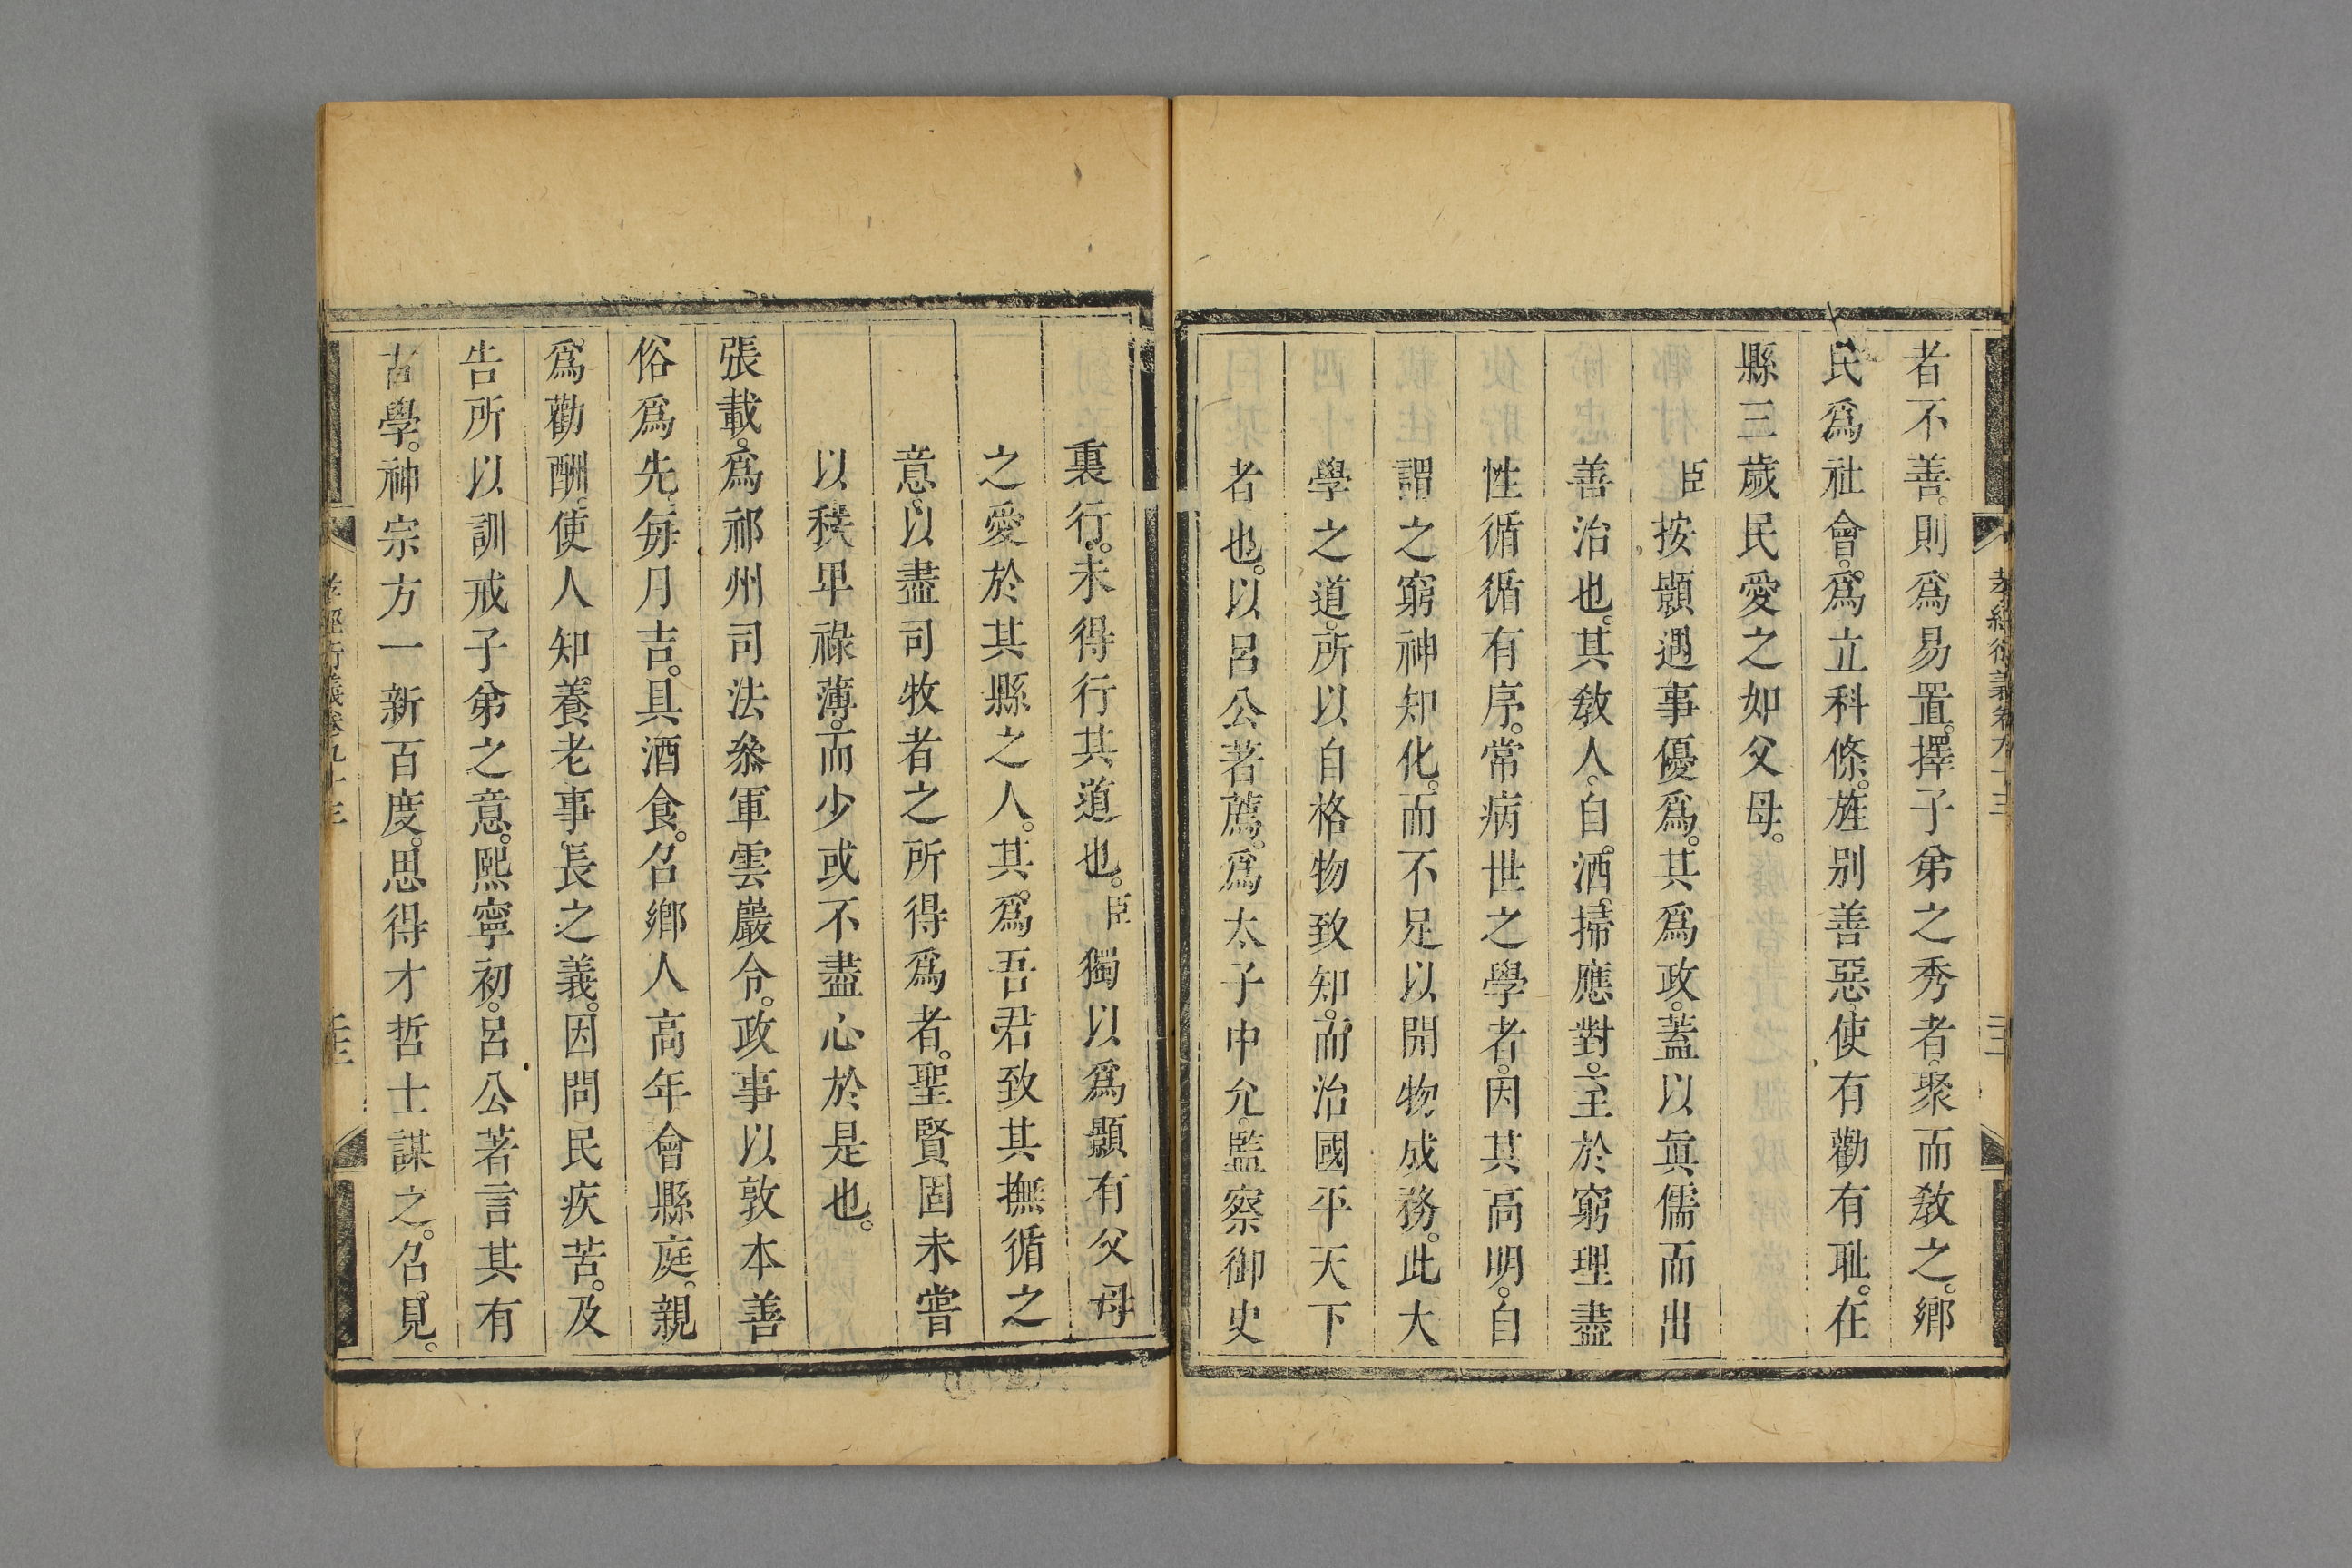 者不善。則爲易置。擇子弟之秀者。聚而敎之。鄉
民爲社會。爲立科條。旌别善惡。使有勸有耻。在
縣三歲民愛之如父母。
臣按顥遇事優爲。其爲政。蓋以眞儒而出
善治也。其敎人。自洒掃應對。至於窮理盡
性循循有序。常病世之學者。因其高明。自
謂之窮神知化。而不足以開物成務。此大
學之道。所以自格物致知。而治國平天下
者也。以呂公著薦。爲太子中允。監察御史
裏行。未得行其道也。臣獨以爲顥有父母
之愛於其縣之人。其爲吾君致其撫循之
意。以盡司牧者之所得爲者。聖賢固未嘗
以秩卑祿薄。而少或不盡心於是也。
張載。爲祁州司法叅軍雲巖令。政事以敦本善
俗爲先。每月吉。具酒食。召鄉人高年會縣庭。親
爲勸酬。使人知養老事長之義。因問民疾苦。及
告所以訓戒子弟之意。熙寧初。呂公著言其有
古學。神宗方一新百度。思得才哲士謀之。召見。